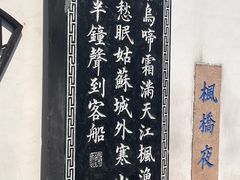 楓橋夜
烏啼霜滿天江楓漁
愁眠姑蘇城外寒山
半鐘聲到客船